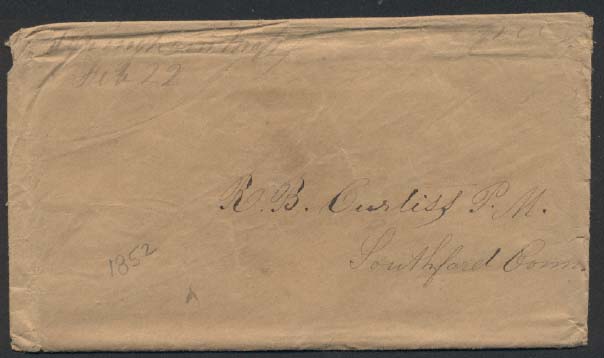 Feb 22
R. B. Curtiss P. M.
Southford Conn
1852